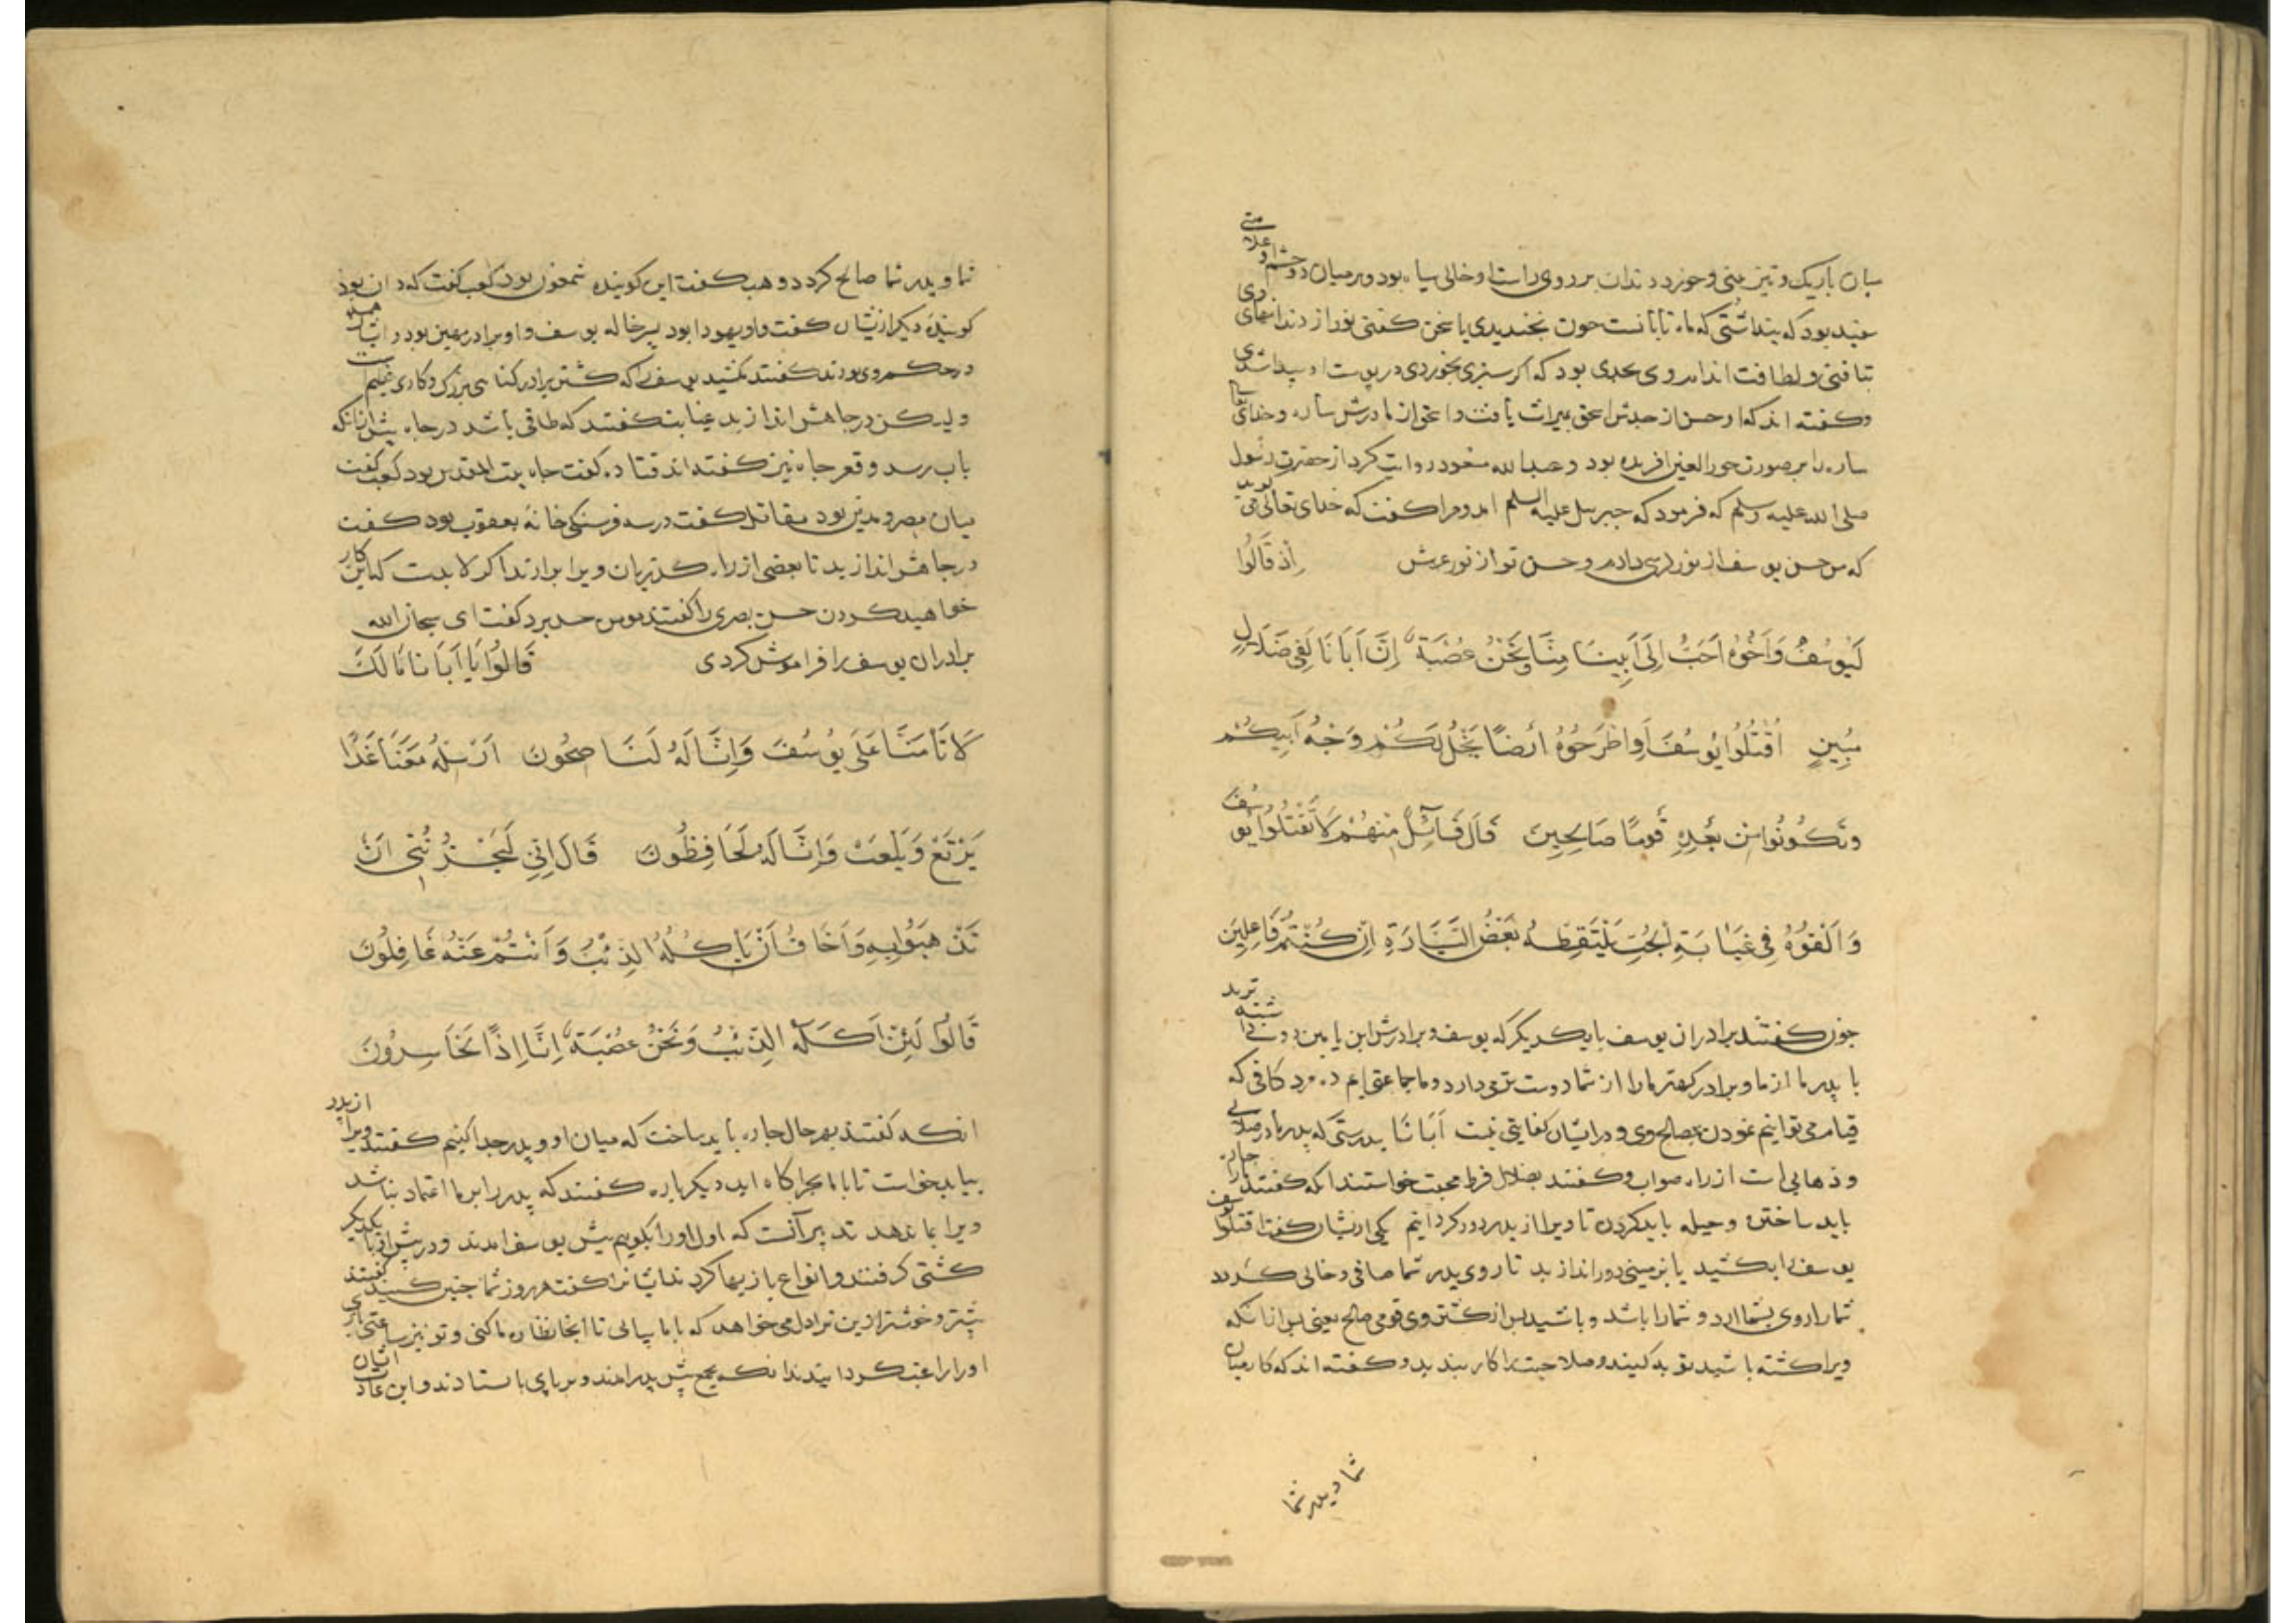 میان باریک و تیز بینی و خورد دندان بر روی راست او خالی سیاه بود و بر میان دو چشم او علامتی
سفید بود که پنداشتی که ماه تابانست چون بخندیدی یا سخن کفتی نور از دندانهای وی
تافتی و لطافت اندام وی بحدی بود که اکر سبزی بخوردی در پوست او پیدا شدی
و کفته اند که او حسن از جدش اسحق میراث یافت و اسحق از مادرش ساره و خدای تعالی
ساره را بر صورت حور العین افریده بود و عبد الله مسعود روایت کرد از حضرت رسول
صلی الله علیه وسلم که فرمود که جبریل علیه السلم امد و مرا کفت که خدای تعالی می کوید
که من حسن یوسف از نور کرسی دادم و حسن تو از نور عرش اِذْ قَالُوا
لَيُوسُفُ وَاَخُوهُ اَحَبُّ اِلَى اَبِينَا مِنَّا وَنَحْنُ عُصْبَةٌ اِنَّ اَبَانَا لَفِي ضَلَالٍ
مُبِينٍ اُقْتُلُوا يُوسُفَ اَوِ اطْرَحُوهُ اَرْضًا يَخْلُ لَكُمْ وَجْهُ اَبِيكُمْ
وَتَكُونُوا مِنْ بَعْدِهِ قَومًا صَالِحِينَ قَالَ قَآئِلٌ مِنْهُمْ لَا تَقْتُلُوا يُوسُفَ
وَاَلْقُوهُ فِي غَيَابَةِ الْجُبِّ يَلْتَقِطْهُ بَعْضُ السَّيَّارَةِ اِنْ كُنْتُمْ فَاعِلِينَ
چون کفتند برادران یوسف با یکدیکر که یوسف و برادرش ابن یامین دوست تر ند
با پدر ما از ما و برادر کهتر ما را از شما دوست تر می دارد و ما جماعتی ایم ده مرد کافی که
قیام می توانیم نمودن بمصالح وی و در ایشان کفایتی نیست اَبَانَا بدرستی که پدر ما در ضلالی
و ذهابی است از راه صواب و کفتند بضلال فرط محبت خواستند انکه کفتند ما را چاره
باید ساختن و حیله باید کردن تا ویرا از پدر دور کردانیم یکی از یشان کفت اقتلوا یوسف
یوسف را بکشید یا بزمینی دور اندازید تا روی پدر شما صافی و خالی کردد
شما را روی بشما ارد و شما را باشد و باشید پس از کشتن وی قومی صالح یعنی پس از انکه
ویرا کشته باشید توبه کنید و صلاحیت را کار بندید و کفته اند که کار میان
شما و پدر شما
شما و پدر شما صالح کردد وهب کفت این کوینده شمعون بود کعب کفت که دان بود
کوینده دیکر از یشان کفت و او یهودا بود پسر خاله یوسف و او برادر مهین بود و ایشان همه
در حکم وی بودند کفتند مکشید یوسف را که کشتن برادر کناهی بزرک و کاری عظیم است
و لیکن در چاهش اندازید غیابت کفتند که طاقی باشد در چاه پیش از انکه
باب رسد و قعر چاه نیز کفته اند قتاده کفت چاه بیت المقدس بود کعب کفت
میان مصر و مدین بود مقاتل کفت در سه فرسنکی خانه یعقوب بود کفت
در چاهش اندازید تا بعضی از راه کذریان ویرا بر ارند اکر لا بدست که این کار
خواهید کردن حسن بصری را کفتند مومن حسد برد کفت ای سبحان الله
برادران یوسف را فراموش کردی قَالُوا يَا اَبَانَا مَا لَكَ
لَا تَأْمَنَّا عَلَى يُوسُفَ وَاِنَّا لَهُ لَنَاصِحُونَ اَرْسِلْهُ مَعَنَا غَدًا
يَرْتَعْ وَيَلْعَبْ وَاِنَّا لَهُ لَحَافِظُونَ قَالَ اِنِّي لَيَحْزُنُنِي اَنْ
تَذْهَبُوا بِهِ وَاَخَافُ اَنْ يَاْكُلَهُ الذِّئْبُ وَاَنْتُمْ عَنْهُ غَافِلُونَ
قَالُوا لَئِنْ اَكَلَهُ الذِّئْبُ وَنَحْنُ عُصْبَةٌ اِنَّا اِذًا لَخَاسِرُونَ
انکه کفتند بهر حال چاره باید ساخت که میان او و پدر جدا کنیم کفتند ویرا از پدر
بباید خواست تا با ما بچراکاه اید دیکر باره کفتند که پدر را بر ما اعتماد نباشد
ویرا بما ندهد تدبیر آنست که اول او را بکوییم پیش یوسف امدند و در پیش او با یکدیکر
کشتی کرفتند و انواع بازیها کردند ایشانرا کفت هر روز شما چنین کنید کفتند
بیشتر و خوشتر ازین ترا دل می خواهد که با ما بیایی تا انجا نظاره ما کنی و تو نیز ساعتی بازی
او را راغب کردانیدند انکه بجمع پیش پدر امدند و بر پای باستادند و این عادت ایشان